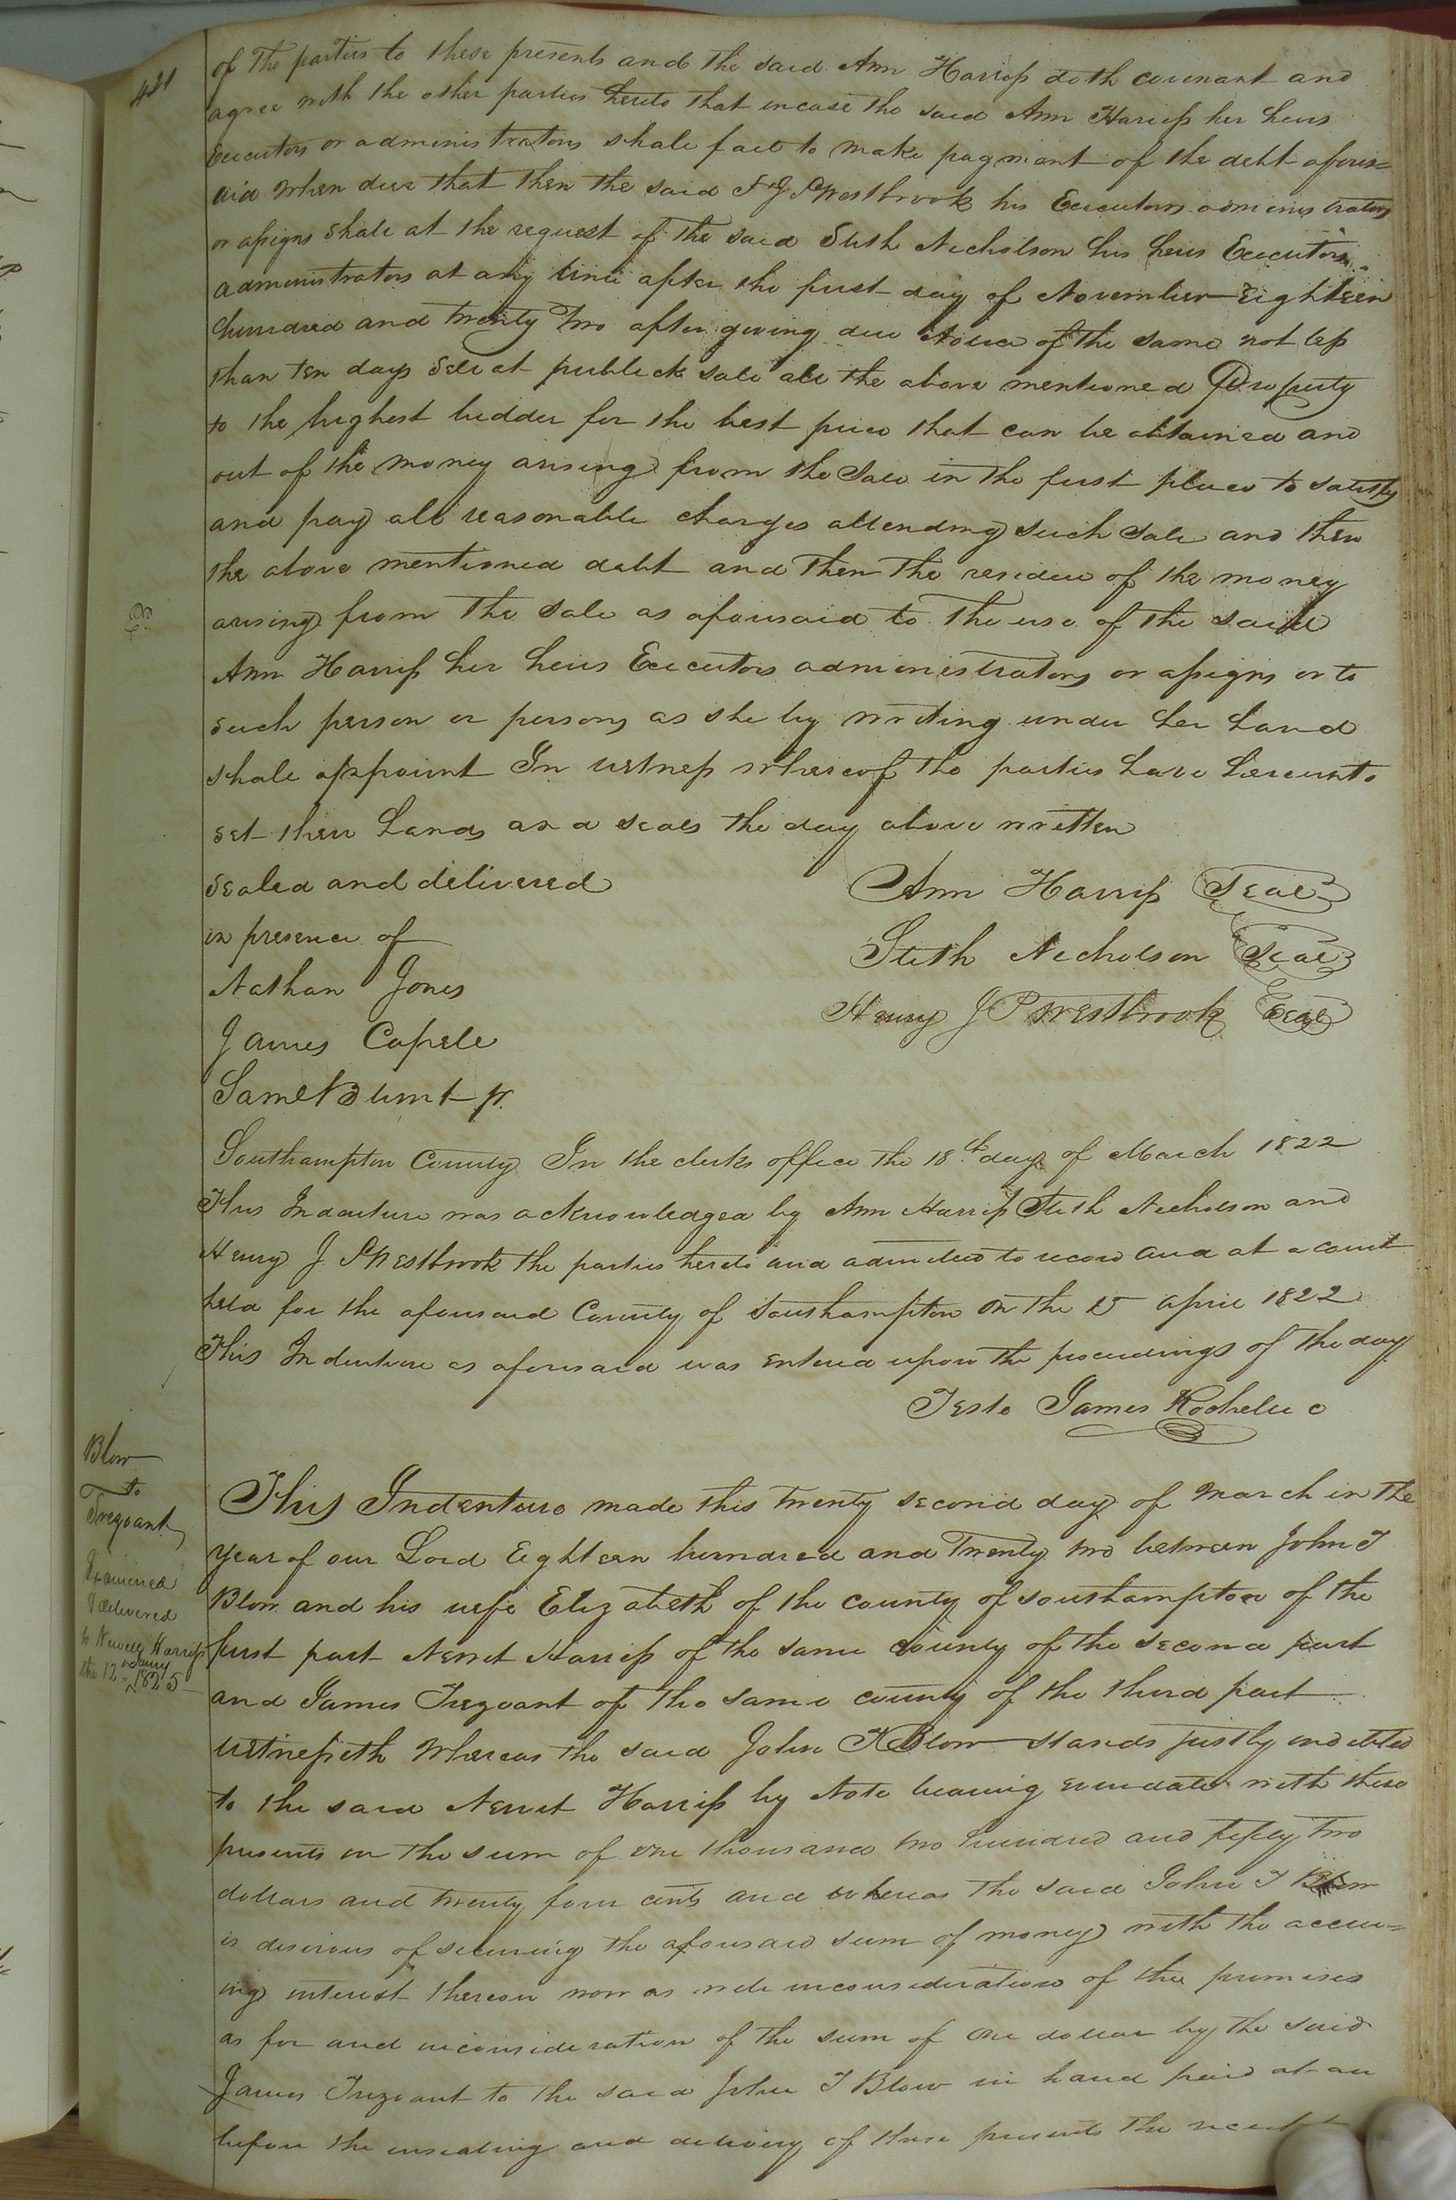 421
of the parties to these presents and the said Ann Harriss doth covenant and
agree with the other parties hereto that incase the said Ann Harriss her heirs
Executors or administrators shall fail to make payment of the debt afores=
aid when due that then the said H J P Westbrook his Executors administrators
or assigns shall at the request of the said Stith Nicholson his heirs Executors
administrators at any time after the first day of November Eighteen
hundred and twenty two after giving due Notice of the same not less
than ten days Sell at publick sale all the above mentioned Property
to the highest bidder for the best price that can be obtained and
out of the money arising from the Sale in the first place to satisfy
and pay all reasonable charges attending such Sale and then
the above mentioned debt and then the residue of the money
arising from the Sale as aforesaid to the use of the said
Ann Harriss her heirs Executors administrators or assigns or to
such person or persons as she by writing under her hand
shall appoint In witness whereof the parties have hereunto
set their hands and seals the day above written
Sealed and delivered
in presence of
Nathan Jones
James Capele
Saml Blunt jr.
Ann Harriss Seal
Stith Nicholson Seal
Henry J P Westbrook Seal
Southampton County In the clerks office the 18th day of March 1822
This Indenture was acknowledged by Ann Harriss Stith Nicholson and
Henry J. P Westbrook the parties hereto and admitted to record and at a court
held for the aforesaid County of Southampton on the 15 April 1822
This Indenture as aforesaid was entered upon the proceedings of the day
Teste James Rochelle c
Blow
to
Trezvant
Examined
& delivered
to Newit Harriss
the 12 1825
This Indenture made this twenty second day of March in the
year of our Lord Eighteen hundred and Twenty two between John T
Blow and his wife Elizabeth of the county of Southampton of the
first part Newit Harriss of the same county of the second part
and James Trezvant of the same county of the third part
witnesseth Whereas the said John T Blow stands justly indebted
to the said Newit Harriss by Note bearing evendate with these
presents in the sum of one thousand two hundred and fifty two
dollars and twenty four cents and whereas the said John T Blow
is desirous of securing the aforesaid sum of money with the accru=
ing interest thereon now as well inconsideration of the premises
as for and inconsideration of the sum of one dollar by the said
James Trezvant to the said John T Blow in hand paid at an
before the ensealing and delivery of these presents the